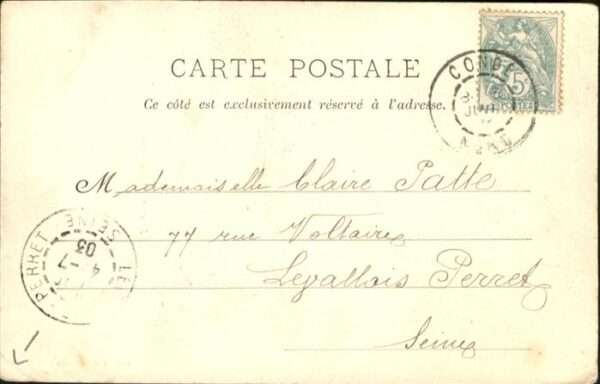 CARTE POSTALE
Ce côté est exclusivement réservé à l'adresse.
CONDÉ
NORD
5c
Mademoiselle Claire Patte
77 rue Voltaire
Levallois Perret
Seine
PERRET SEINE
4 - 7
03